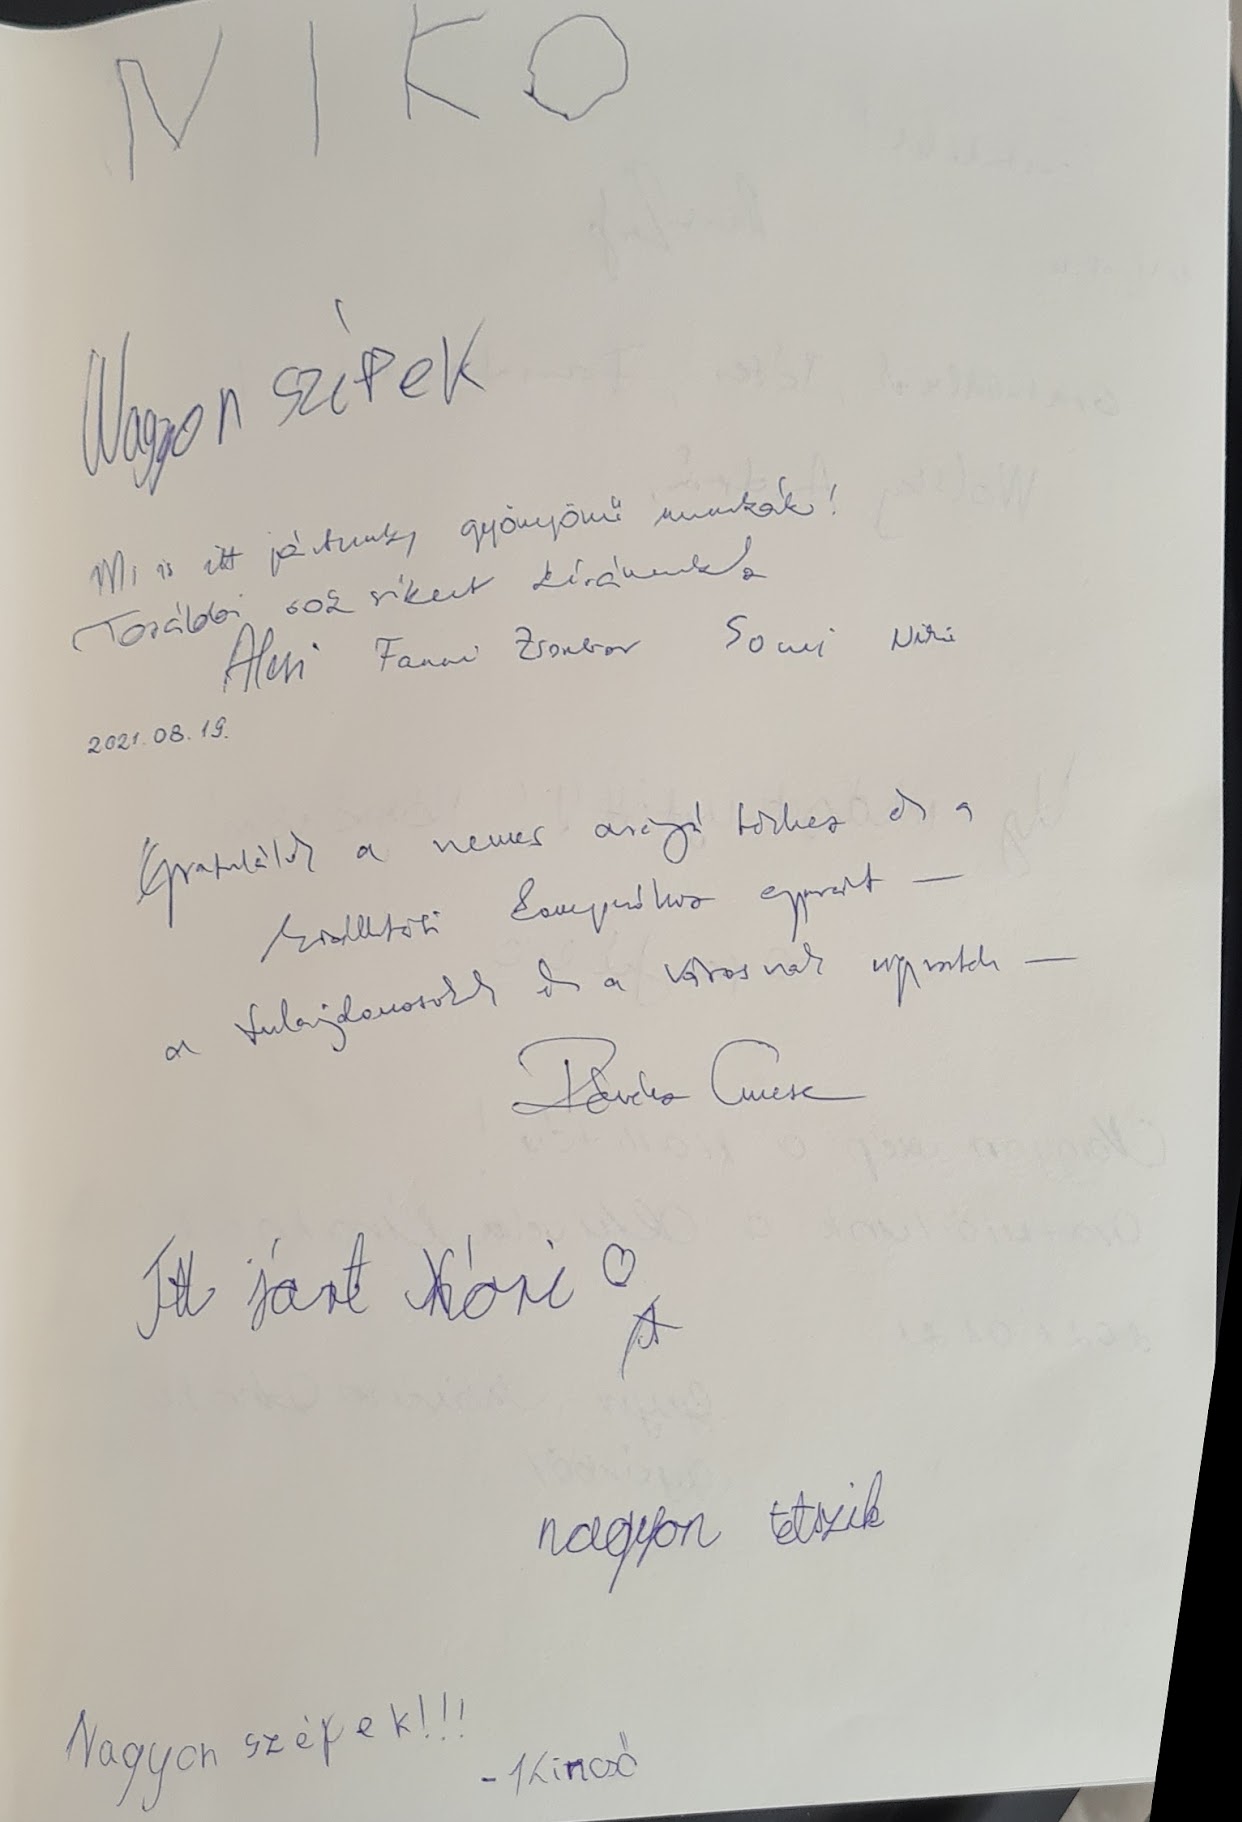 NIKO
Nagyon szépek
Mi is itt jártunk, gyönyörű munkák!
További sok sikert kívánunk
Alexi Fanni Zsombor Somi Niki
2021.08.19.
Gratulálok a nemes arányú térhez és a
kiállítási koncepcióhoz egyaránt —
a tulajdonosnak és a városnak egyaránt —
Emese
Itt járt Nóri ♡
nagyon tetszik
Nagyon szépek!!!
- Kincső